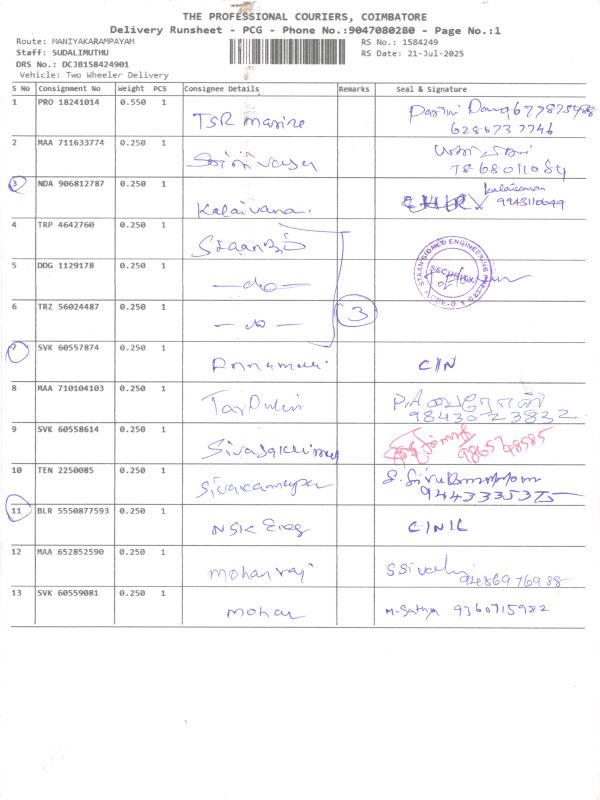 THE PROFESSIONAL COURIERS, COIMBATORE
Delivery Runsheet - PCG - Phone No.:9047080280 - Page No.:1
Route: MANIYAKARAMPAYAM RS No.: 1584249
Staff: SUDALIMUTHU RS Date: 21-Jul-2025
DRS No.: DCJB158424901
Vehicle: Two Wheeler Delivery
S No Consignment No Weight PCS Consignee Details Remarks Seal & Signature
1 PRO 18241014 0.550 1 TSR marine
6286737746
2 MAA 711633774 0.250 1
3 NDA 906812787 0.250 1 Kalaivana. Kalaivanan
4 TRP 4642760 0.250 1
5 DDG 1129178 0.250 1 -do-
6 TRZ 56024487 0.250 1 -do- 3
7 SVK 60557874 0.250 1 CIN
8 MAA 710104103 0.250 1 P.A
98430 23832
9 SVK 60558614 0.250 1
10 TEN 2250085 0.250 1
9443335375
11 BLR 5550877593 0.250 1 NSK Eneg
12 MAA 652852590 0.250 1 mohanraj
9486976988
13 SVK 60559081 0.250 1 mohan M. Sathya 9360715982